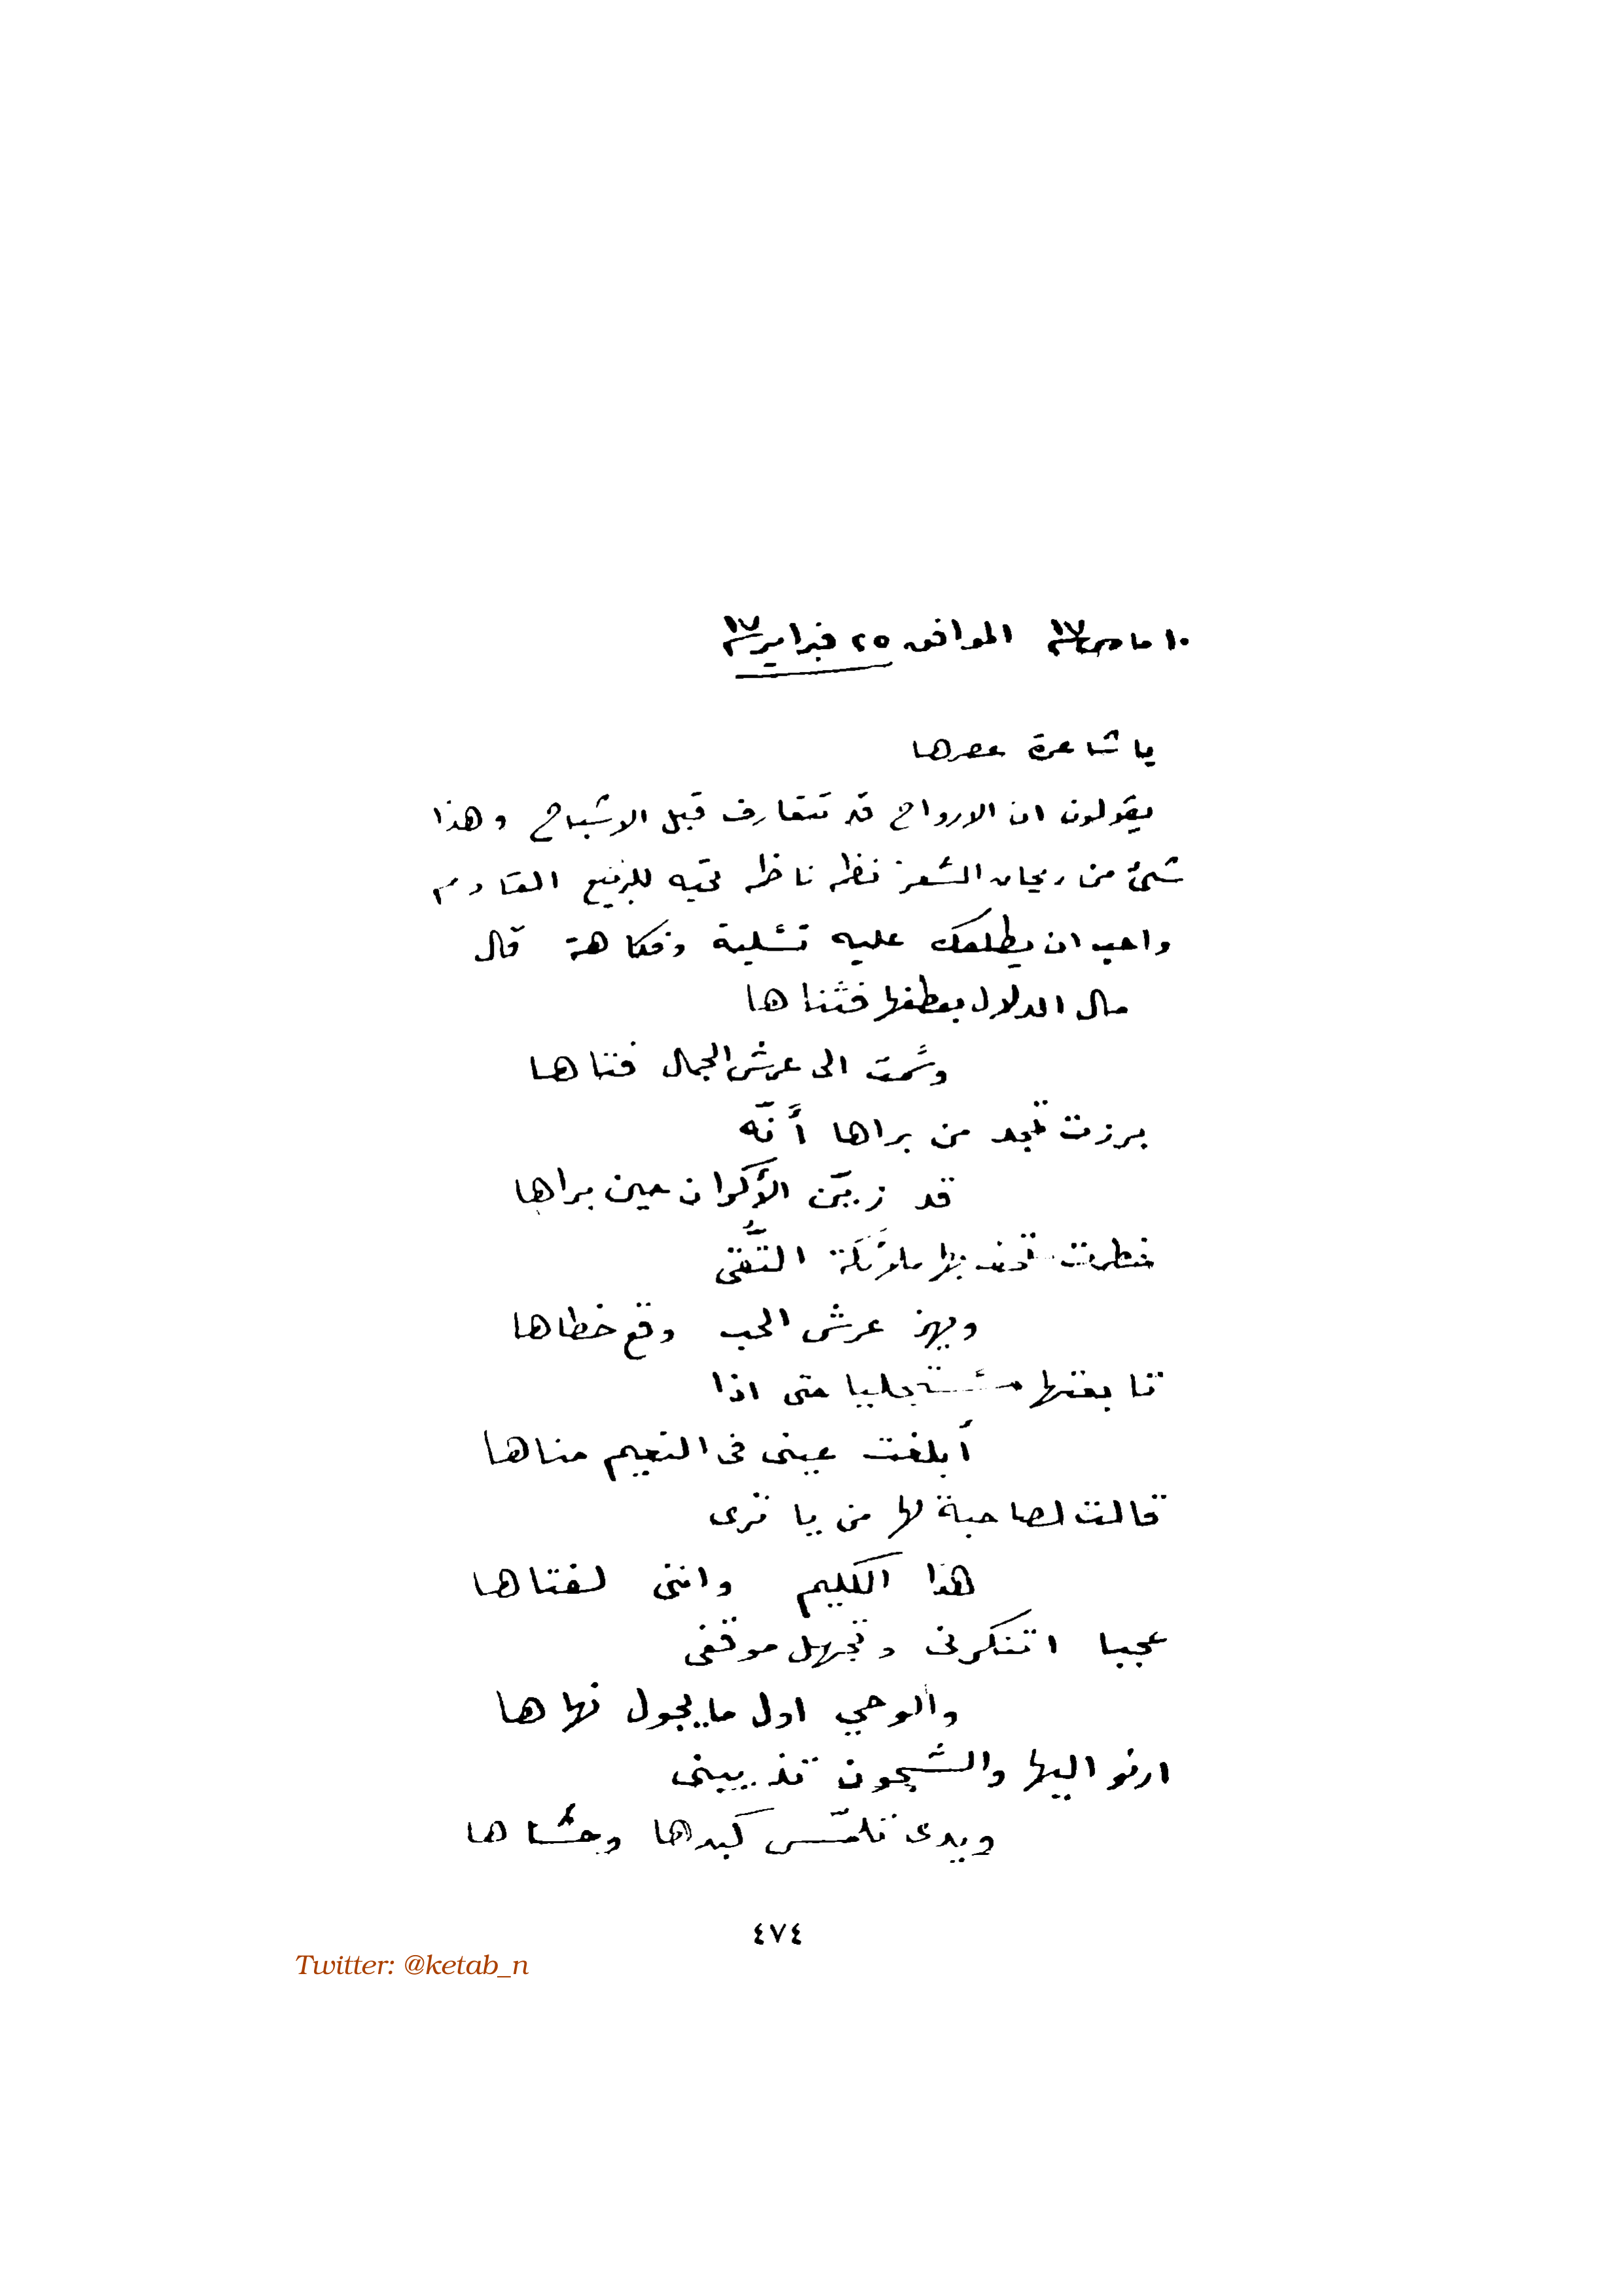 ١٠ مارس ١٧ الموافق ٢٥ فبراير ١٧
يا شاعرة عصرها
يقولون ان الارواح قد تتعارف قبل الاشباح وهذا
شئ من ريحان الشعر نظمه ناظمه تحيه للربيع القادم
واحب ان يطلعك عليه تسلية وفكاهة قال
مال الدلال بعطفها فثناها
وسمت الى عرش الجمال فتاها
برزت تمجد من براها أنّه
قد زيّن الأكوان حين براها
خطرت تحف بها ملائكة التُّقى
ويهز عرش الحب وقع خطاها
تابعتها مستجليا حتى اذا
أبلغت عينى فى النعيم مناها
قالت لصاحبة لها من يا ترى
هذا الكليم وانثنى لفتاها
عجبا اتنكرنى وتجهل موقفى
والوحي اول ما يجول نهاها
ارنو اليها والشجون تذيبنى
ويدى تلمّس كبدها وحشاها
٤٧٤
Twitter: @ketab_n